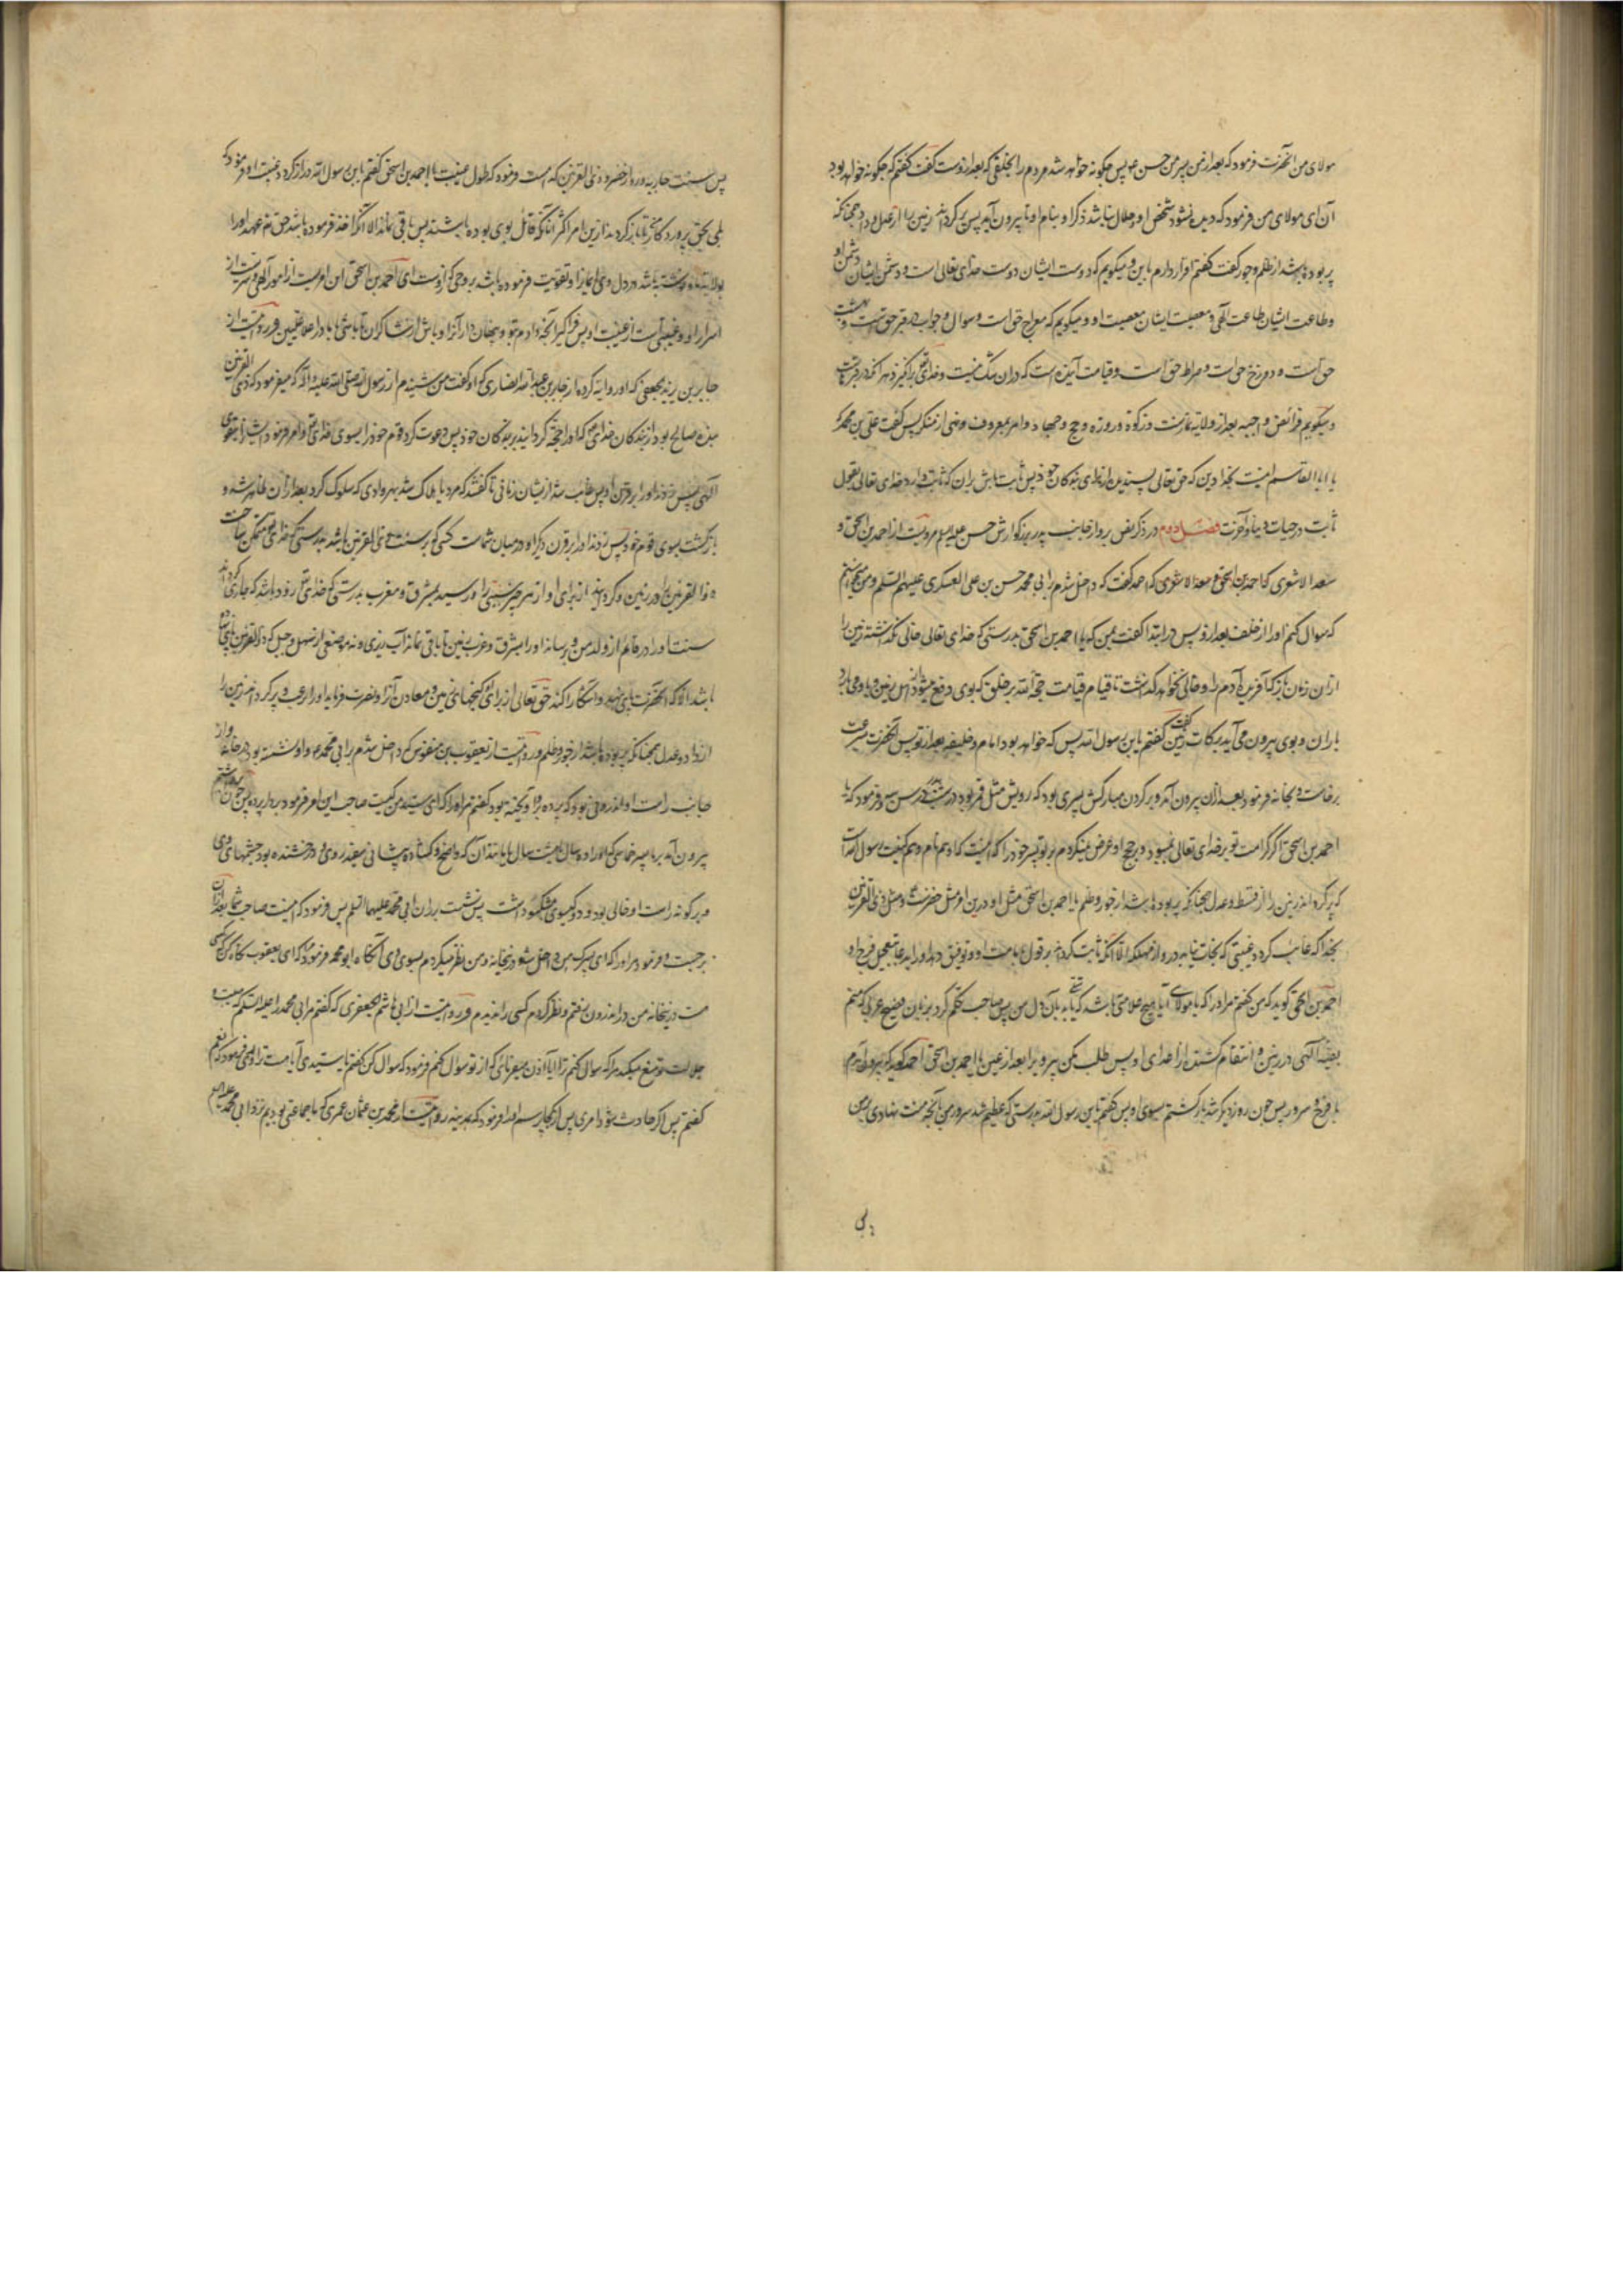 مولای من آنحضرت فرمود که بعد از من پسر من حسن ع پس چگونه خواهد شد مردم را بخلفی که بعد از وست گفت گفتم که چگونه خواهد بود
آن ای مولای من فرمود که دیده نشود شخص او و حلال نباشد ذکر او بنام او تا بیرون آید پس پر گرداند زمین را از عدل و داد همچنانکه
پر بوده باشد از ظلم و جور گفت گفتم اقرار دارم باین و میگویم که دوست ایشان دوست خدای تعالی است و دشمن ایشان دشمن او
و طاعت ایشان طاعت الهی و معصیت ایشان معصیت او و میگویم که معراج حق است و سوال و جواب در قبر حق است و بهشت
حق است و دوزخ حق است و صراط حق است و قیامت آینده است که در آن شک نیست و خدای تع برانگیزد هر آنکه در قبرهاست
و میگویم فرائض واجبه بعد از ولایة نماز است و زکوة و روزه و حج و جهاد و امر بمعروف و نهی از منکر پس گفت علی بن محمد که
یا ابا القاسم اینست بخدا دین که حق تعالی پسندیده از برای بندگان خود پس ثابت باش بر آن که ثابت دارد خدای تعالی بقول
ثابت در حیات دنیا و آخرت فصل دوم در ذکر نص برو از جانب پدر بزرگوارش حسن علیه السلام مرویست از احمد بن اسحق و
سعد الاشعری که احمد بن اسحق سعد الاشعری که احمد گفت که داخل شدم بر ابی محمد حسن بن علی العسکری علیهم السلم و من میخواستم
که سوال کنم او را از خلف بعد از و پس در ابتدا گفت بمن که یا احمد بن اسحق بدرستی که خدای تعالی خالی نگذاشته زمین را
از آن زمان باز که آفریده آدم را و خالی نخواهد گذاشت تا قیام قیامت حجة الله بر خلق که بوی دفع میشود از اهل زمین و بوی می بارد
باران و بوی بیرون می آید برکات زمین گفت گفتم یا بن رسول الله پس که خواهد بود امام و خلیفه بعد از تو پس آنحضرت بسرعت
برخاست و بخانه فرمود بعد از آن بیرون آمد و بر گردن مبارکش پسری بود که رویش مثل قمر بود در سن سه و فرمود که یا
احمد بن اسحق اگر کرامت تو بر خدای تعالی نمیبود و بر حجج او عرض نمیکردم بر تو پسر خود را که اینست که او هم نام و هم کنیت رسول الله است
که پر گرداند زمین را از قسط و عدل همچنانکه پر بوده باشد از جور و ظلم یا احمد بن اسحق مثل او درین امر مثل خضرست ع و مثل ذی القرنین
بخدا که غائب گردد غیبتی که نجات نیابد درو از مهلکه الا آنکه ثابت گرداند بر قول بامامت او و توفیق دهد او را بدعا بتعجیل فرج او
احمد بن اسحق گوید که من گفتم مر او را که یا مولای آیا هیچ علامتی باشد که بآن دل من پس صاحب تکلم کرد بزبان فصیح عربی که منم
بقیة الهی در زمین و انتقام کشنده از اعدای او پس طلب مکن پیروی بعد از عین یا احمد بن اسحق احمد گوید که بیرون آمدم
با فرح و سرور پس چون روز دیگر شد بازگشتم بسوی او پس گفتم یا بن رسول الله بدرستی که عظیم شد سرور من بآنچه منت نهادی بمن
پس سنت جاریه درو از خضر و ذی القرنین کدام است فرمود که طول غیبت یا احمد بن اسحق گفتم یا بن رسول الله دراز گردد غیبت او فرمود که
بلی بحق پروردگار من تا باز گردند ازین امر اکثر آنانکه قائل بوی بوده باشند پس باقی نماند الا آنکه اخذ فرموده باشد حق تع عهد او را
بولایة ما و نوشته باشد در دل وی ایمان را و تقویت فرموده باشد بروحی که ازوست ای احمد بن اسحق این امریست از امور الهی و سریست از
اسرار او و غیبی است از غیبت او پس فراگیر آنچه دادم بتو و پنهان دار آنرا و باش از شاکران تا باشی با ما در اعلا علیین و مرویست از
جابر بن یزید جعفی که او روایة کرده از جابر بن عبد الله انصاری که او گفت من شنیدم از رسول الله صلی الله علیه و آله که میفرمود که ذی القرنین
بنده صالح بود از بندگان خدای تع که او را حجة گردانید بر بندگان خود پس دعوت کرد قوم خود را بسوی خدای تع و امر فرمود ایشان را بتقوی
الهی پس زدند او را بر قرن او پس غائب شد از ایشان زمانی تا گفتند که مرد یا هلاک شد بهر وادی که سلوک کرد بعد از آن ظاهر شد و
بازگشت بسوی قوم خود پس زدند او را بر قرن دیگر او و در میان شماست کسی که بر سنت ذی القرنین باشد بدرستی که خدای تع متمکن ساخت
ذو القرنین را در زمین و گردانید از برای او از هر چیز سببی را و رسید بمشرق و مغرب بدرستی که خدای تع زود باشد که جاری گرداند
سنت او را در قائم از ولد من و برساند او را بمشرق و مغرب زمین تا باقی نماند آب ریزی و نه موضعی از سهل و جبل که ذو القرنین پای نهاده
باشد الا که آنحضرت پای نهد و آشکارا کند حق تعالی از برای او گنجهای زمین و معادن آنرا و نصرت فرماید او را برعب و پر گرداند زمین را
از داد و عدل همچنانکه پر بوده باشد از جور و ظلم و مرویست از یعقوب بن منقوس که داخل شدم بر ابی محمد ع و او نشسته بود در خانه و از
جانب راست او اندرونی بود که پرده برو آویخته بود گفتم مر او را که ای سید من کیست صاحب این امر فرمود بردار پرده پس چون برداشتم
بیرون آمد بر ما پسر خماسی که او را ده سال یا هشت سال یا مانند آن که واضح و گشاده پیشانی سفید روی و درخشنده بود چشمهای وی
و بر گونه راست او خالی بود و دو گیسوی مشکبو داشت پس نشست بر ران ابی محمد علیهما السلم پس فرمود که اینست صاحب شما بعد از آن
برجست و فرمود مر او را که ای پسرک من داخل شو در خانه و من نظر میکردم بسوی وی آنگاه ابو محمد فرمود مرا که ای یعقوب نگاه کن که کسی
هست در خانه من در اندرون رفتم و نظر کردم کسی را ندیدم و مرویست از ابی هاشم الجعفری که گفتم مر ابی محمد را علیه السلم که هیبت و
جلالت تو منع میکند مرا که سوال کنم ترا آیا اذن میفرمائی که از تو سوال کنم فرمود که سوال کن گفتم یا سیدی آیا هست ترا ولدی فرمود که نعم
گفتم پس اگر حادث شود امری پس از کجا پرسم او را فرمود که بمدینه و مرویست از محمد بن عثمان عمری که با جماعتی بودیم نزد ابی محمد علیه السلم